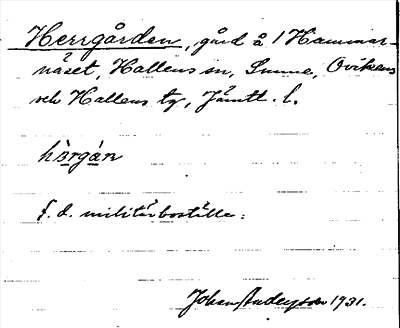 Herrgården, gård å 1 Hammar-
näset, Hallens sn, Sunne, Ovikens
och Hallens tg, Jämtl. l.
härgån
f. d. militärboställe.
Johan Anderson 1931.